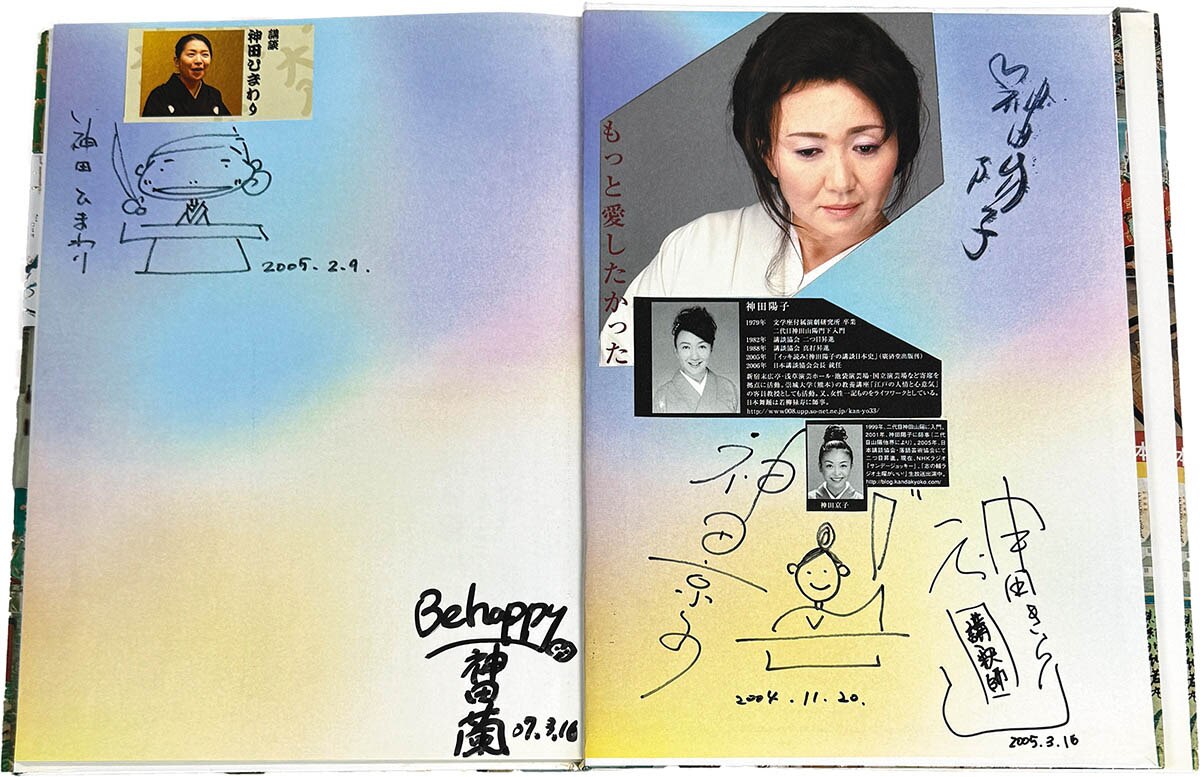 講談
神田ひまわり
神田ひまわり
2005.2.9.
Behappy
神田蘭
07.3.16
もっと愛したかった
神田陽子
神田陽子
1979年 文学座付属演劇研究所 卒業
二代目神田山陽門下入門
1982年 講談協会 二つ目昇進
1988年 講談協会 真打昇進
2005年 「イッキ読み!神田陽子の講談日本史」(廣済堂出版刊)
2006年 日本講談協会会長 就任
新宿末広亭・浅草演芸ホール・池袋演芸場・国立演芸場など寄席を
拠点に活動。崇城大学(熊本)の教養講座「江戸の人情と心意気」
の客員教授としても活動。又、女性一記ものをライフワークとしている。
日本舞踊は若柳禄寿に師事。
http://www008.upp.so-net.ne.jp/kan-yo33/
1999年、二代目神田山陽に入門。
2001年、神田陽子に師事(二代
目山陽他界により)。2005年、日
本講談協会・落語芸術協会にて
二つ目昇進。現在、NHKラジオ
「サンデージョッキー」、「志の輔ラ
ジオ土曜がいい!」生放送出演中。
http://blog.kandakyoko.com/
神田京子
神田京子
2004.11.20.
神田きらり
講釈師
2005.3.16